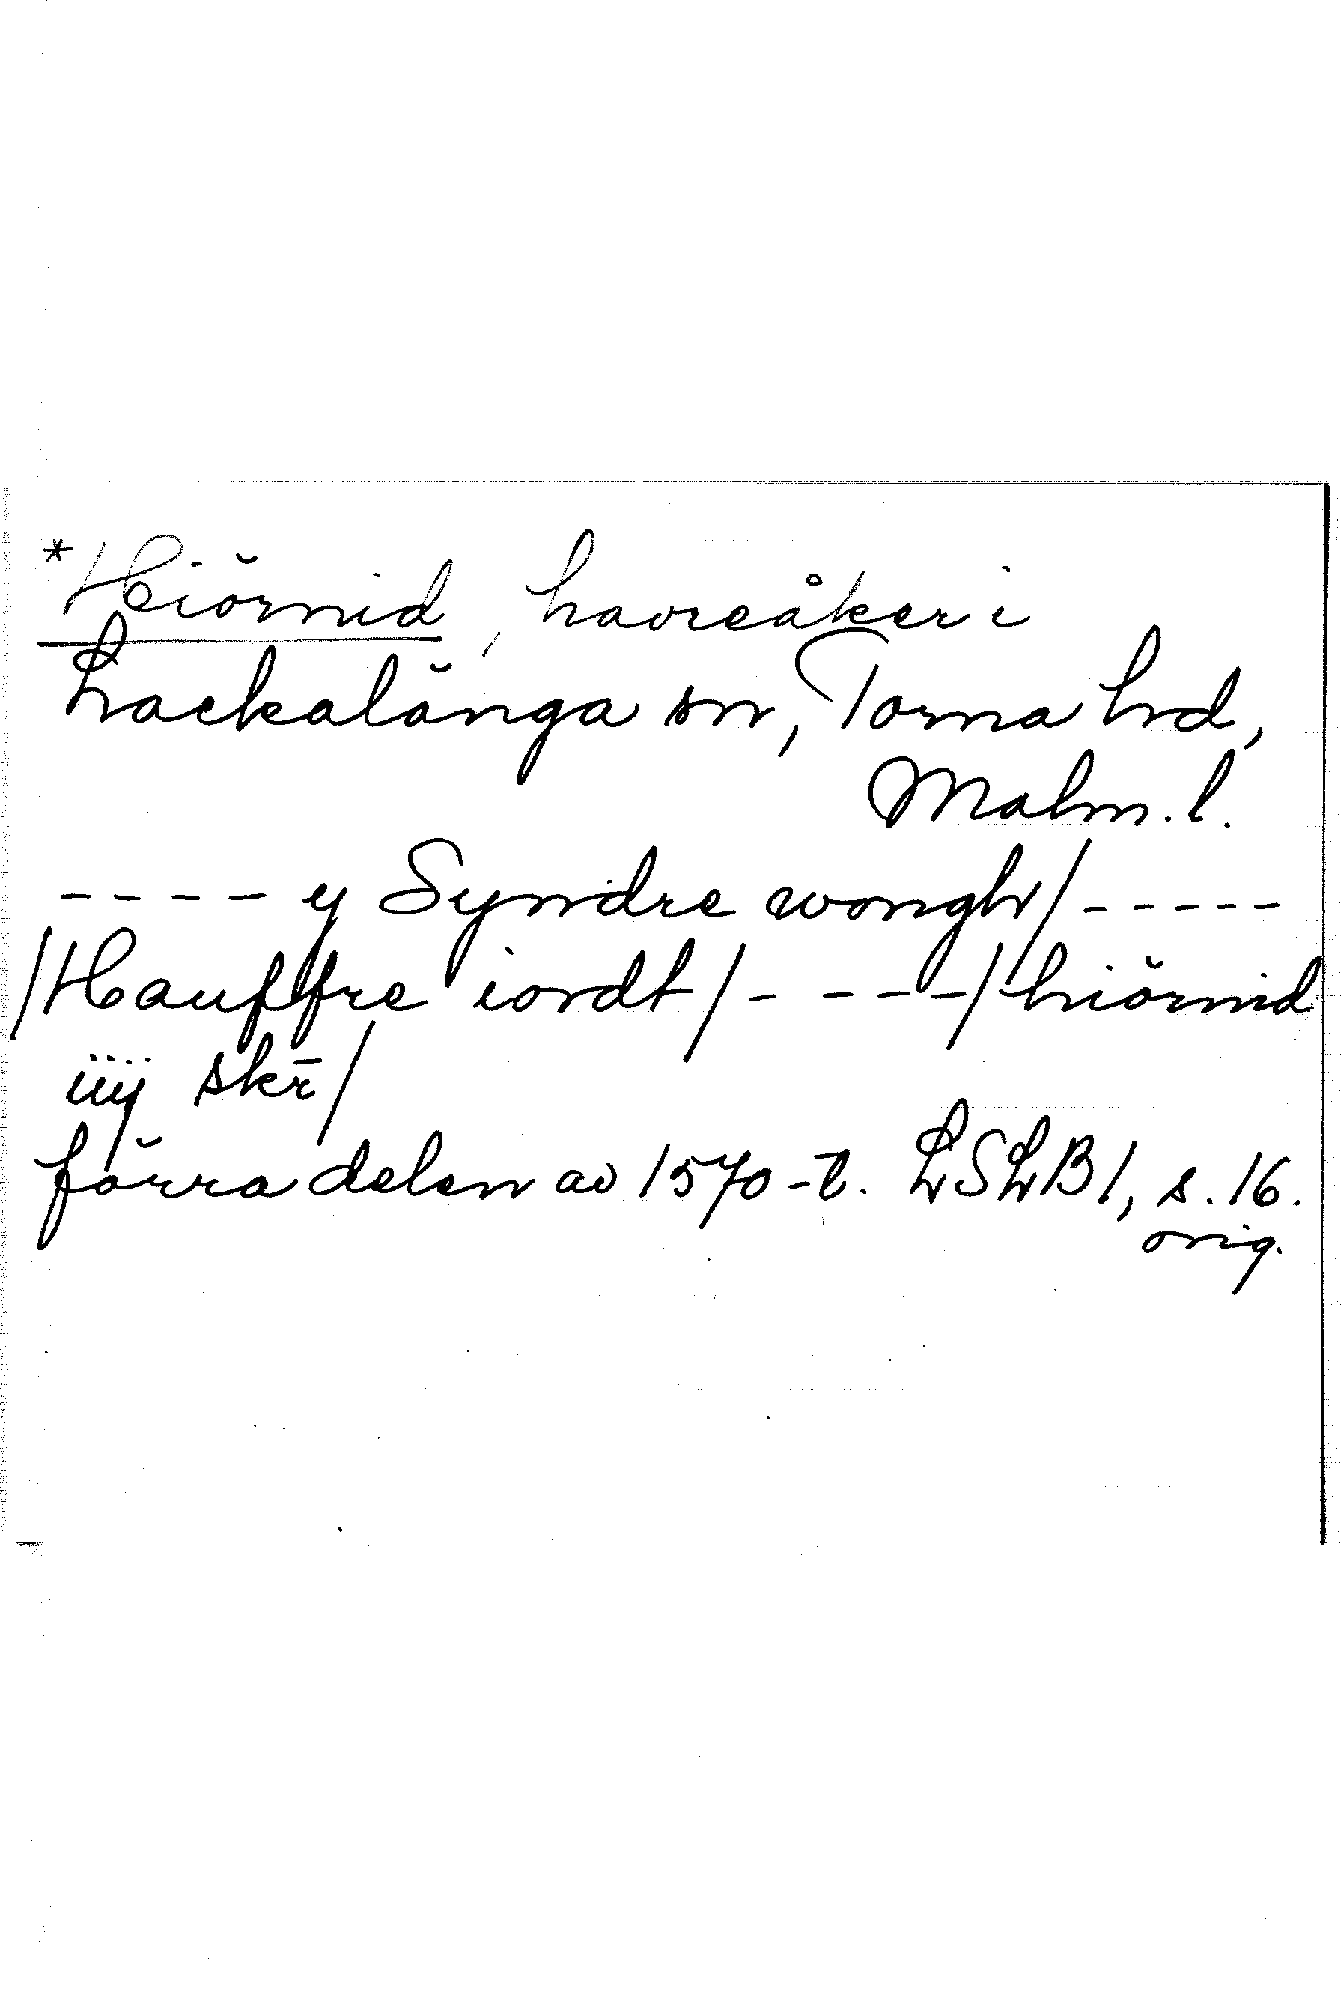 *Hiörnid, havreåker i
Lackalänga sn, Torna hd,
Malm. l.
---- y Syndre wongh/-----
/Hauffre iordt/----/hiörnid
iiij skr̄/
förra delen av 1570-t. LSLB 1, s. 16.
orig.